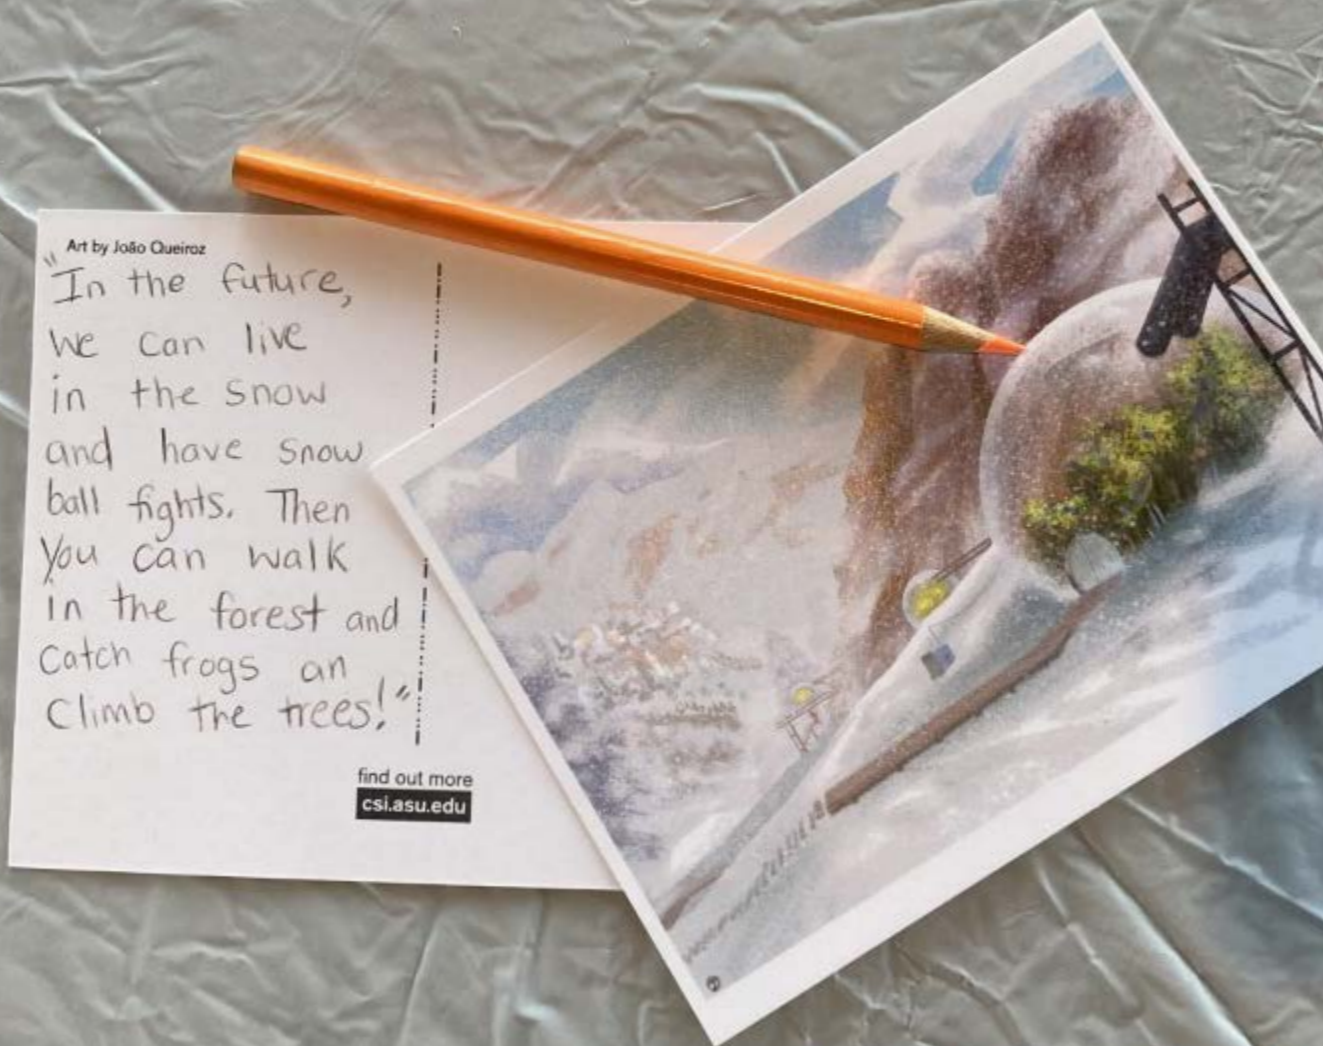 Art by João Queiroz
"In the future,
we can live
in the snow
and have snow
ball fights. Then
you can walk
in the forest and
catch frogs an
climb the trees!"
find out more
csi.asu.edu